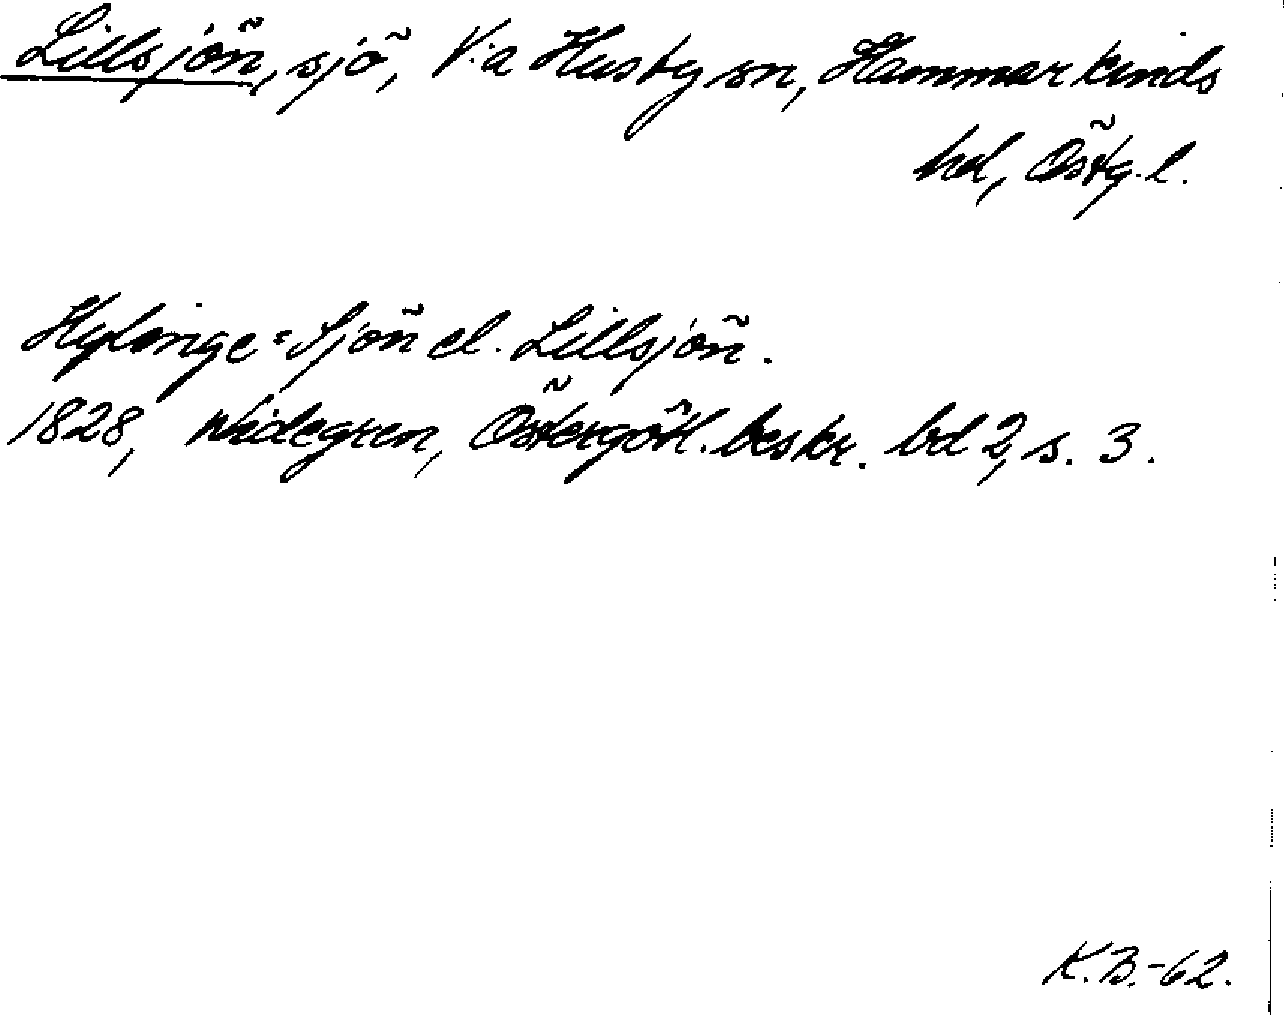 Lillsjön, sjö, V:a Husby sn, Hammarkinds
hd, Östg. l.
Hylinge-Sjön el. Lillsjön.
1828, Widegren, Östergötl. beskr. bd 2, s. 3.
K.B.-62.